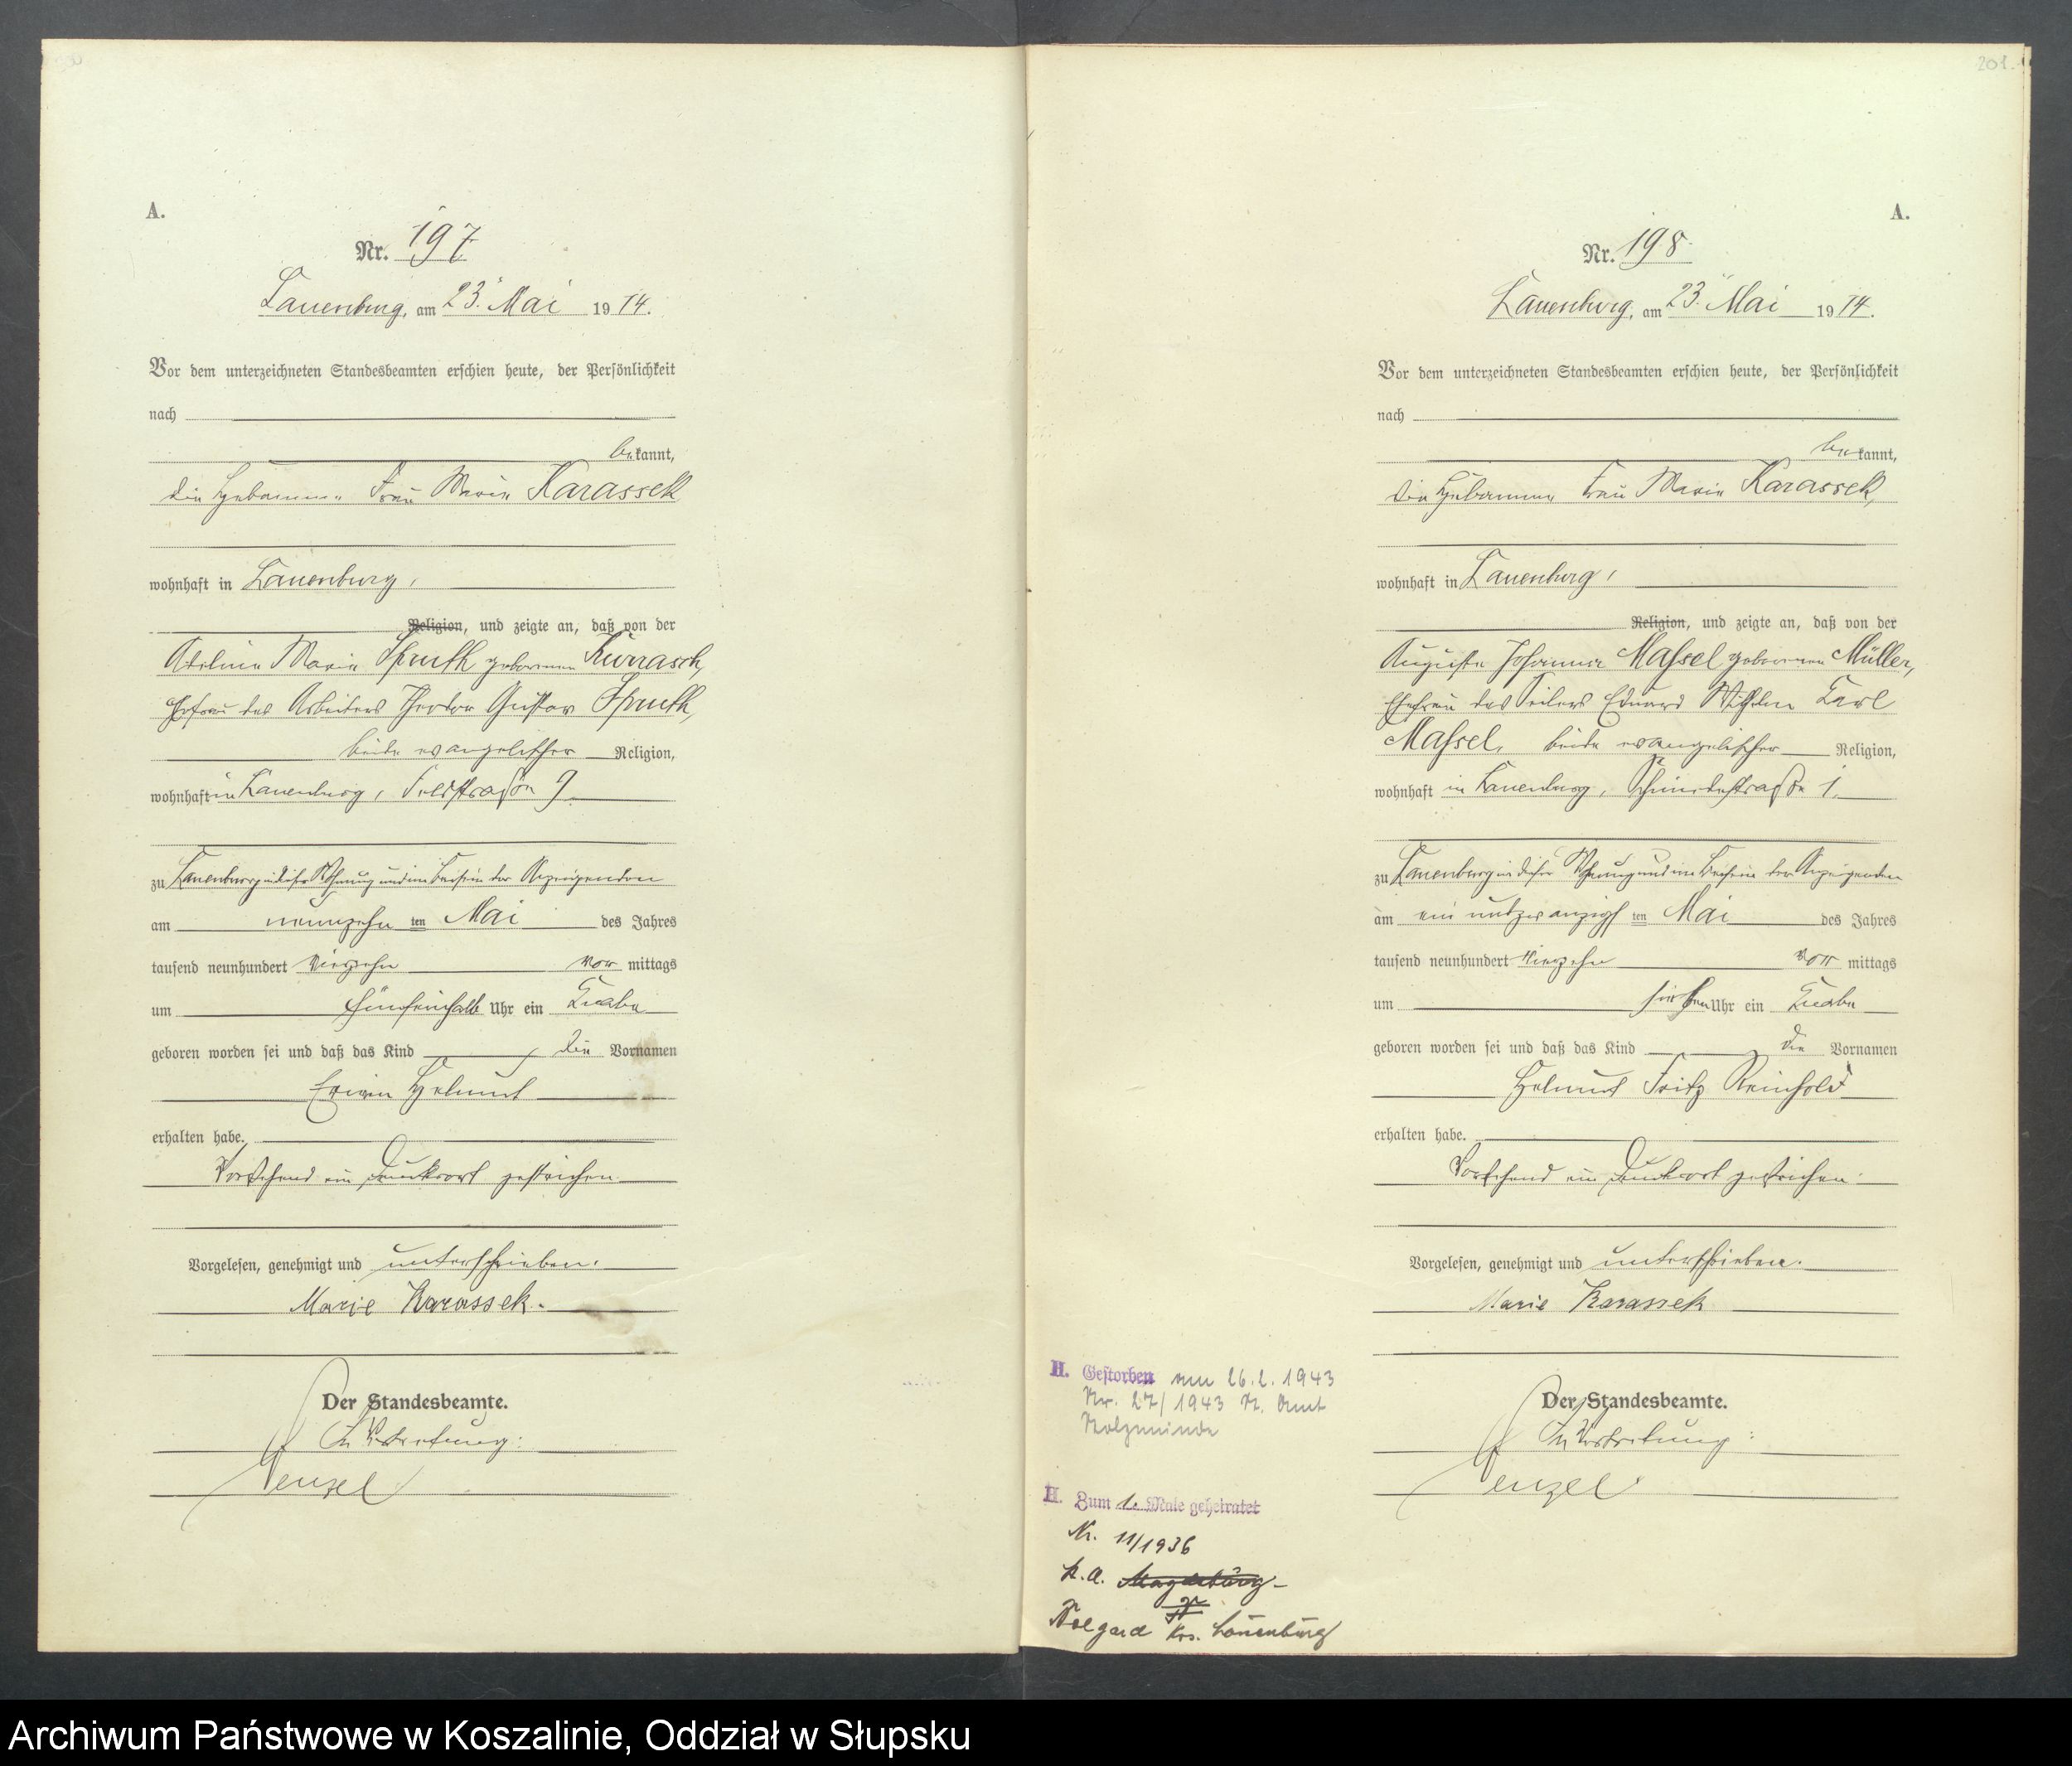 A.
Nr. 197
Lauenburg, am 23. Mai 1914.
Vor dem unterzeichneten Standesbeamten erschien heute, der Persönlichkeit
nach
bekannt,
die Hebamme Frau Marie Karassek
wohnhaft in Lauenburg,
Religion, und zeigte an, daß von der
Marie Spruth geborenen Kurrasch,
Ehefrau des Arbeiters Theodor Gustav Spruth,
beide evangelischer Religion,
wohnhaft in Lauenburg, Feldstraße 9
zu Lauenburg in dieser Wohnung und im Beisein der Anzeigenden
am neunzehn ten Mai des Jahres
tausend neunhundert vierzehn vor mittags
um fünfeinhalb Uhr ein Knabe
geboren worden sei und daß das Kind die Vornamen
Erwin Helmut
erhalten habe.
Vorstehend ein Druckwort gestrichen.
Vorgelesen, genehmigt und unterschrieben.
Marie Karassek.
Der Standesbeamte.
In Vertretung:
Wenzel
201.
A.
Nr. 198
Lauenburg, am 23. Mai 1914.
Vor dem unterzeichneten Standesbeamten erschien heute, der Persönlichkeit
nach
bekannt,
die Hebamme Frau Marie Karassek,
wohnhaft in Lauenburg,
Religion, und zeigte an, daß von der
Auguste Johanna Massel geborenen Müller,
Ehefrau des Seilers Eduard Wilhelm Karl
Massel, beide evangelischer Religion,
wohnhaft in Lauenburg, Schmiedestraße 1.
zu Lauenburg in dieser Wohnung und im Beisein der Anzeigenden
am ein und zwanzigs ten Mai des Jahres
tausend neunhundert vierzehn vor mittags
um sieben Uhr ein Knabe
geboren worden sei und daß das Kind die Vornamen
Helmut Fritz Reinhold
erhalten habe.
Vorstehend ein Druckwort gestrichen.
Vorgelesen, genehmigt und unterschrieben.
Marie Karassek
Der Standesbeamte.
In Vertretung:
Wenzel
H. Gestorben am 26.2.1943
Nr. 27/1943 St. Amt
Holzminden
H. Zum 1. Male geheiratet
Nr. 11/1936
St. A. Magdeburg
Krs. Lauenburg
Archiwum Państwowe w Koszalinie, Oddział w Słupsku